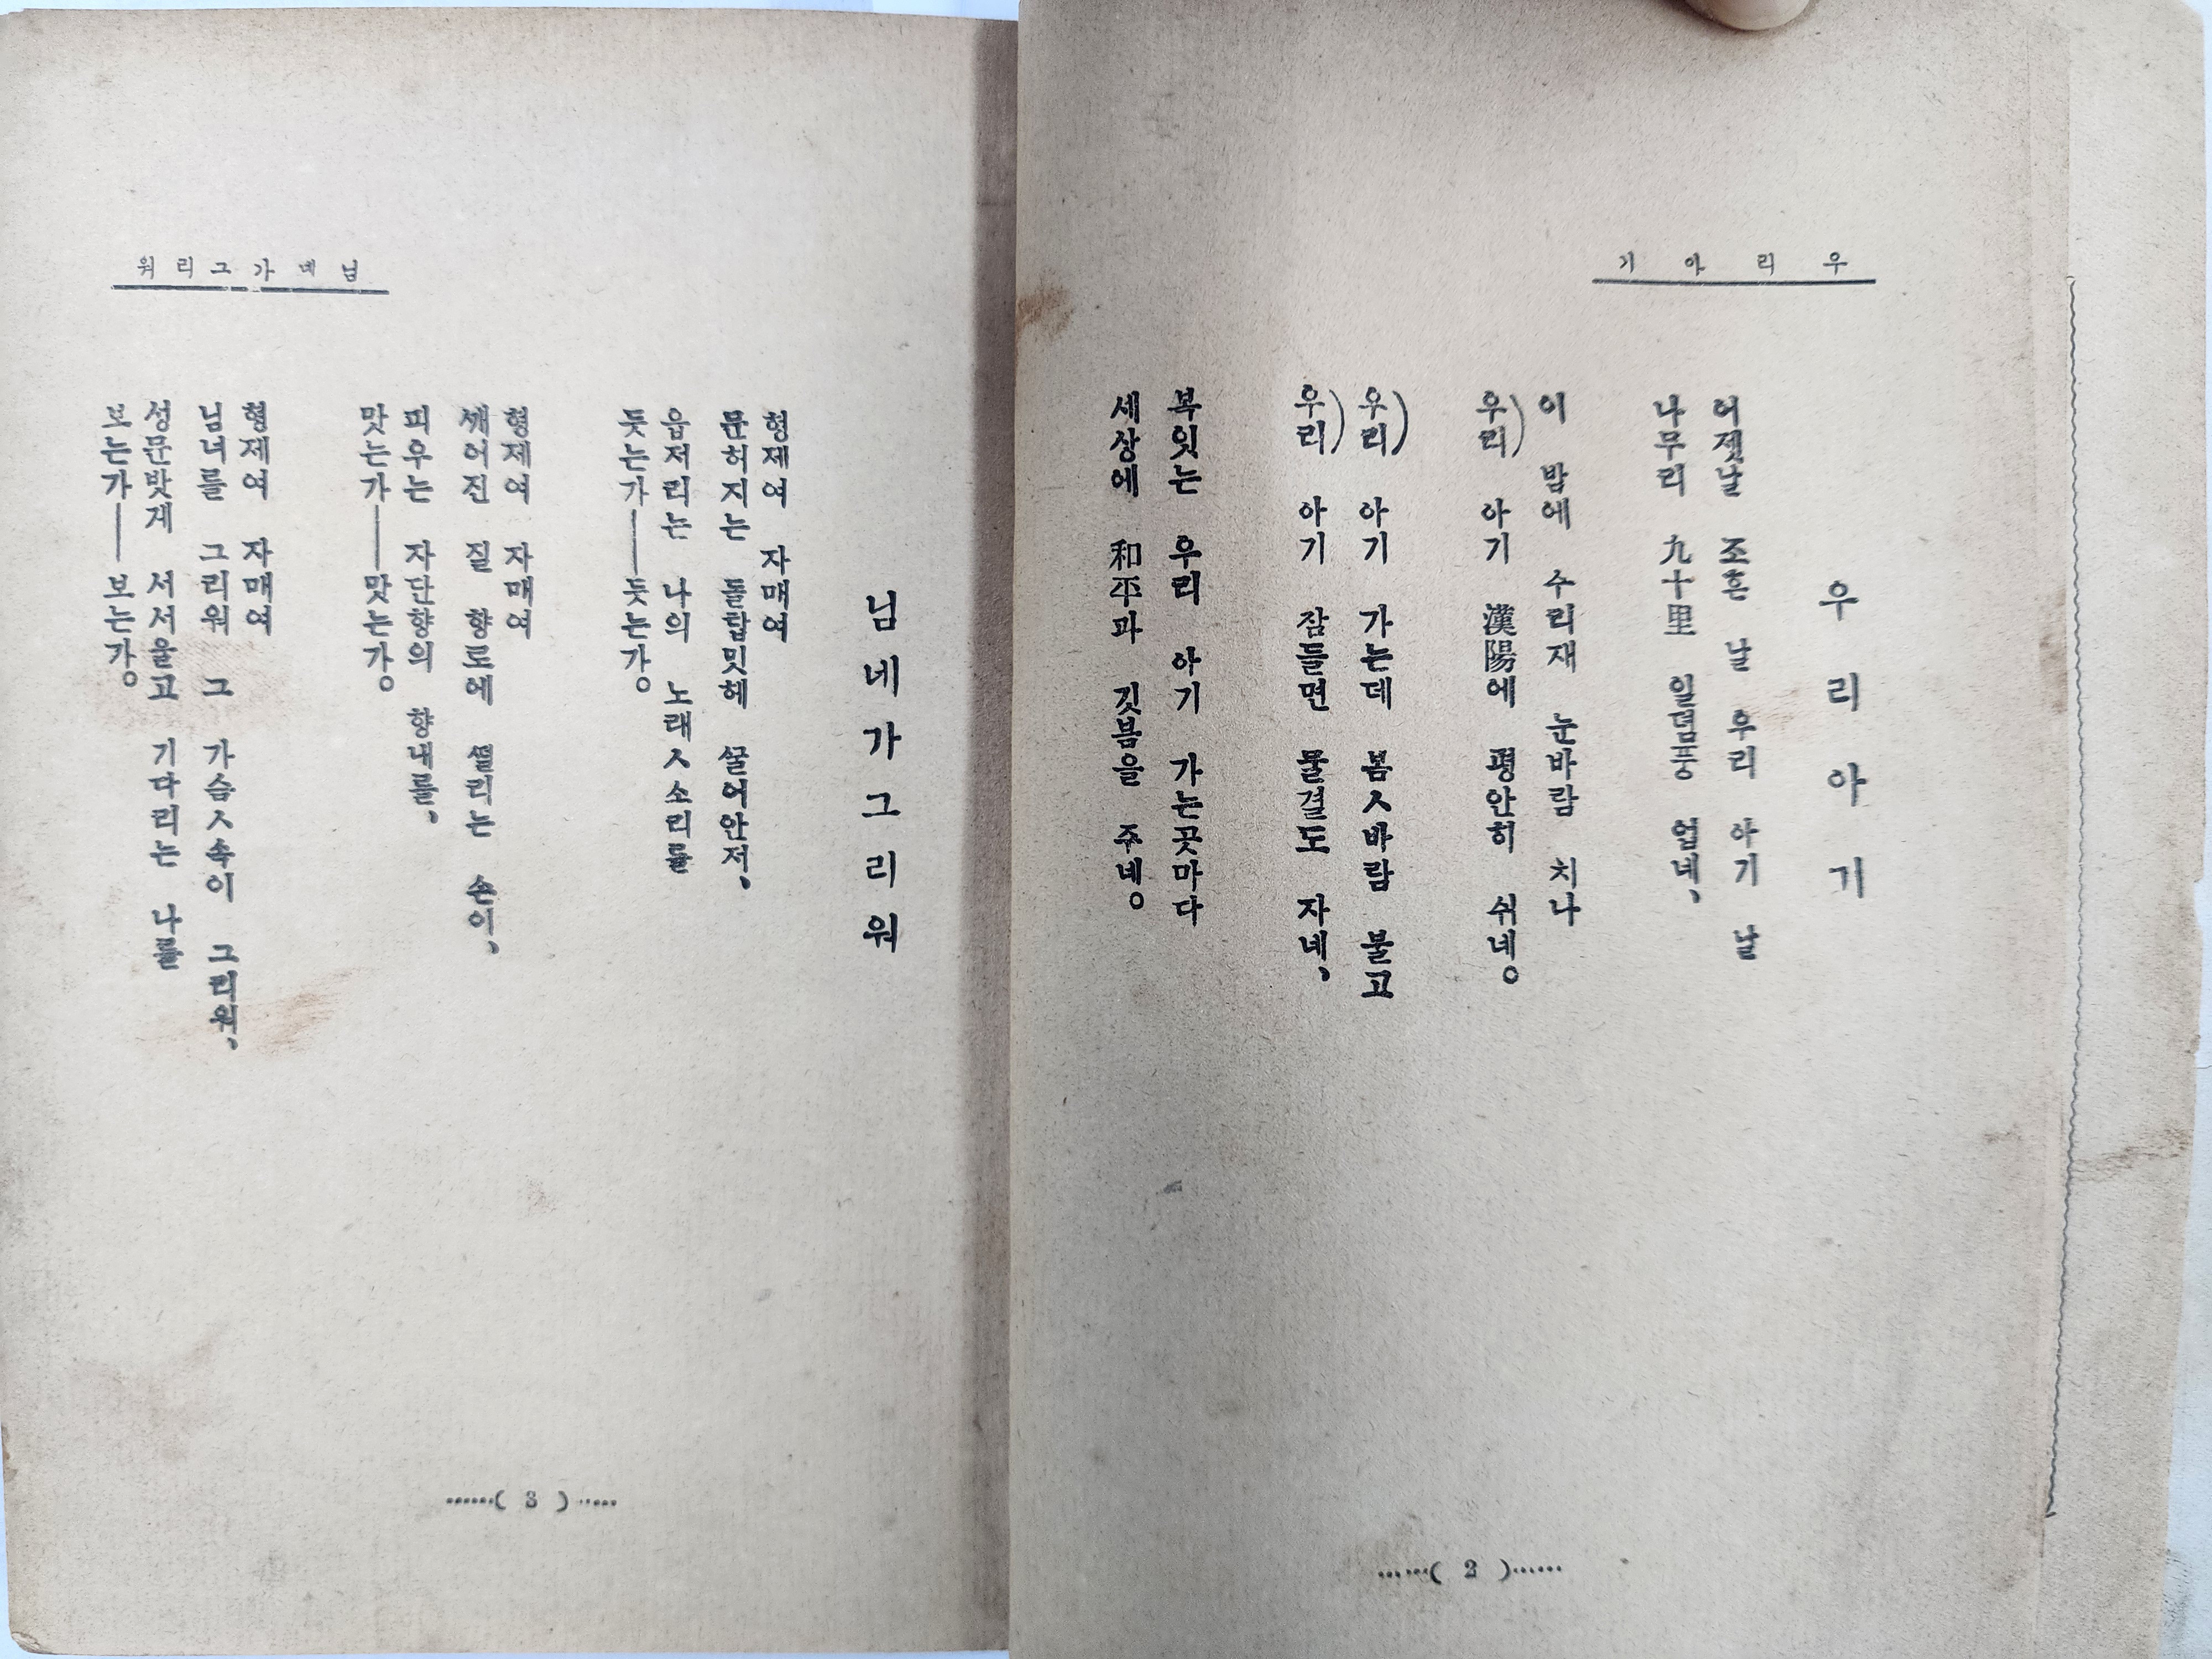 우리아기
우리아기
어젯날 조흔 날 우리 아기 날
나무리 九十里 일뎜풍 업네、
이 밤에 수리재 눈바람 치나
우리) 아기 漢陽에 평안히 쉬네。
우리) 아기 가는데 봄ㅅ바람 불고
우리) 아기 잠들면 물결도 자네、
복잇는 우리 아기 가는곳마다
세상에 和平과 깃븜을 주네。
……( 2 )……
님네가그리워
님네가그리워
형제여 자매여
문허지는 돌탑밋헤 꿀어안저、
읍저리는 나의 노래ㅅ소리를
듯는가──듯는가。
형제여 자매여
깨어진 질 향로에 떨리는 손이、
피우는 자단향의 향내를、
맛는가──맛는가。
형제여 자매여
님녀를 그리워 그 가슴ㅅ속이 그리워、
성문밧게 서서울고 기다리는 나를
보는가──보는가。
……( 3 )……